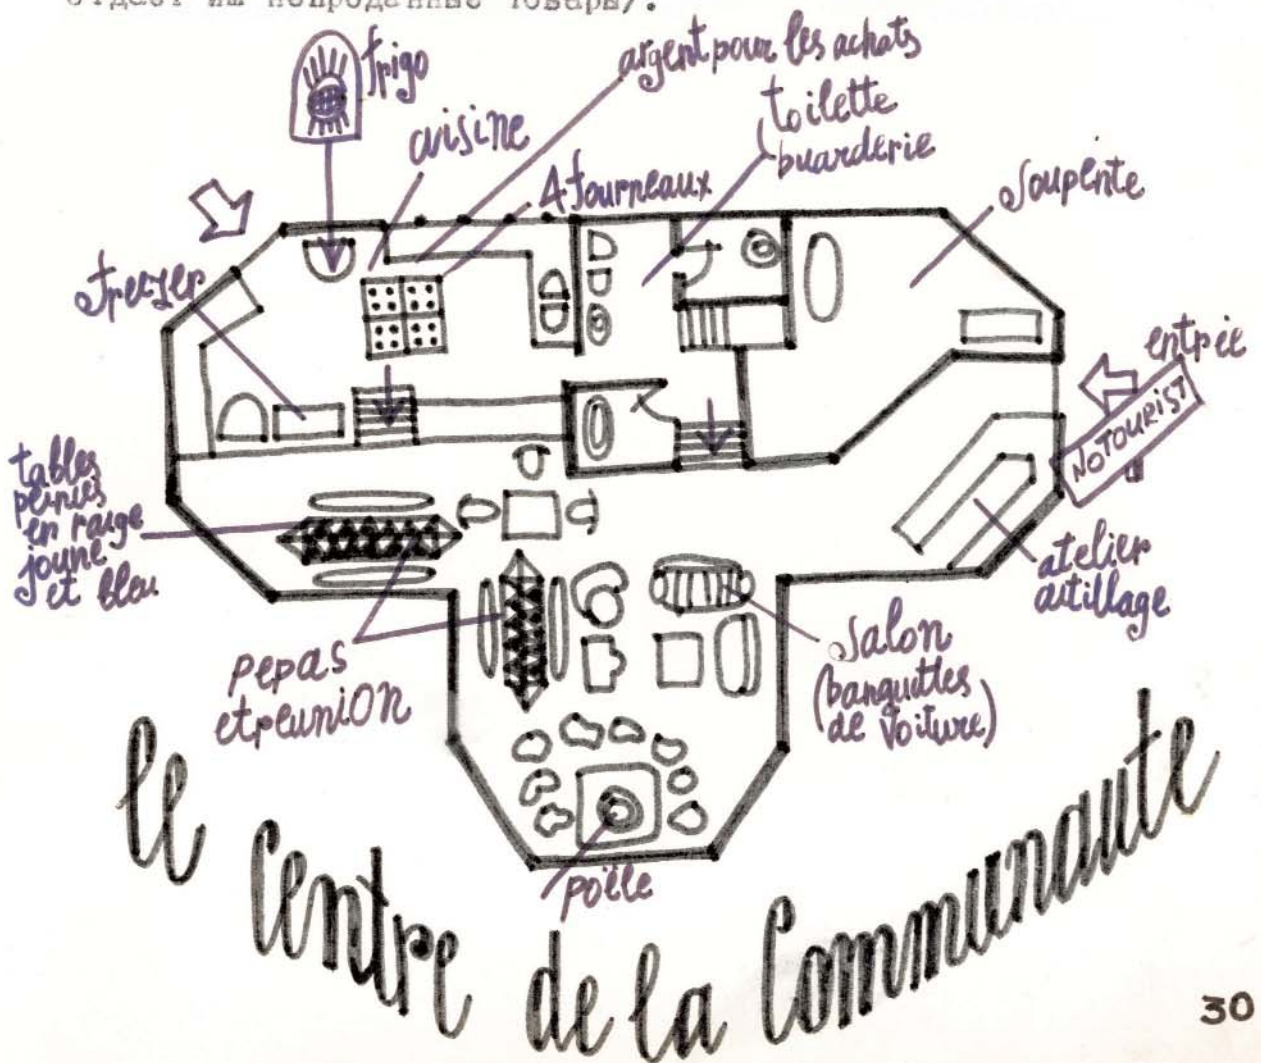 отдает им непроданные товары/.
frigo
argent pour les achats
cuisine
toilette
buarderie
4 fourneaux
soupente
frezer
entrée
NO TOURIST
tables
peintes
en rouge
joune
et bleu
atelier
autillage
pepas
et reunion
salon
(banquettes
de voiture)
poële
le centre de la Communaute
30